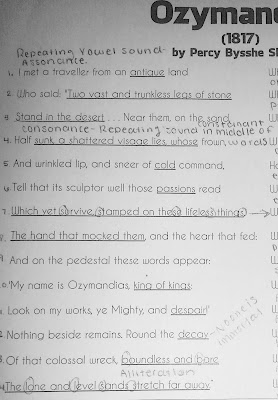 Ozymand
(1817)
Repeating vowel sound-
Assonance.
by Percy Bysshe S
1. I met a traveller from an antique land
2. Who said: "Two vast and trunkless legs of stone
3. Stand in the desert . . . Near them, on the sand,
consonance- Repeating consonant sound in middle of words
4. Half sunk a shattered visage lies, whose frown,
5. And wrinkled lip, and sneer of cold command,
6. Tell that its sculptor well those passions read
7. Which yet survive, stamped on these lifeless things,
The hand that mocked them, and the heart that fed:
And on the pedestal these words appear:
'My name is Ozymandias, king of kings:
Look on my works, ye Mighty, and despair!'
Nothing beside remains. Round the decay
Of that colossal wreck, boundless and bare
Alliteration
The lone and level sands stretch far away."